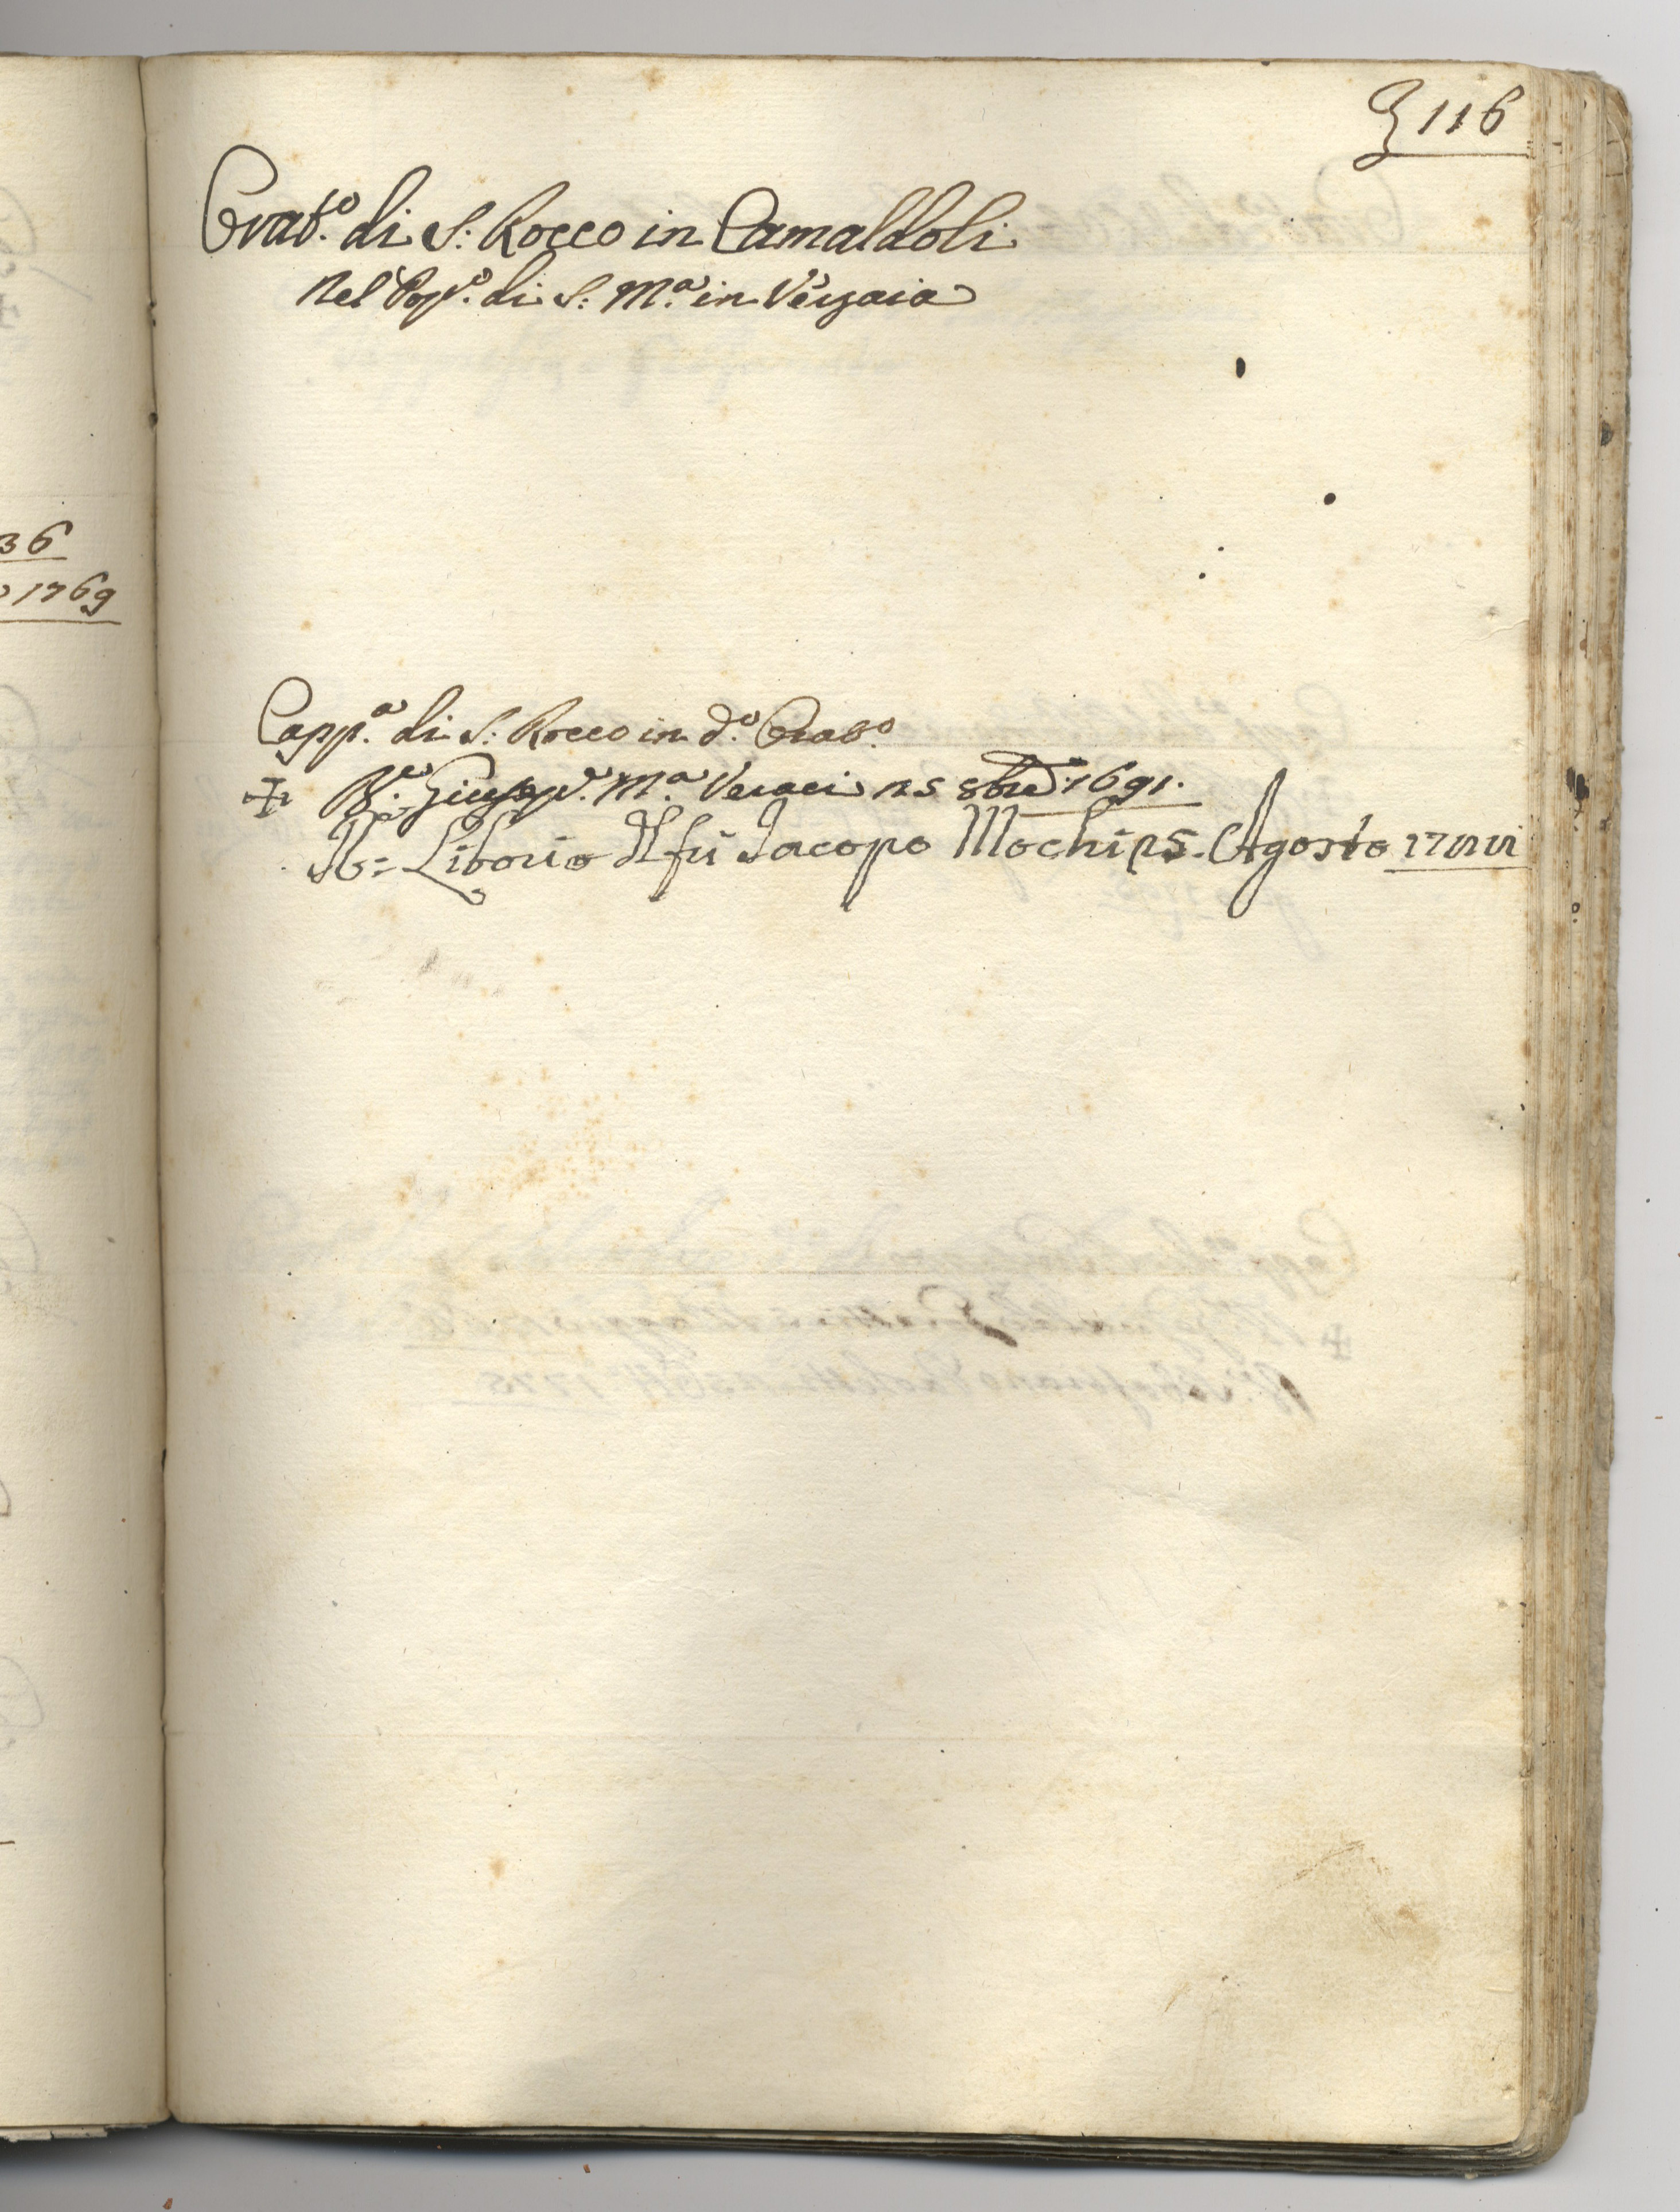 116
Orat.º di S: Rocco in Camaldoli
nel Pop.º di S: M.ª in Verzaia
36
1769
Capp.ª di S: Rocco in d.º Orat.º
R.e Giusep.e M.ª Veraci 25 8bre 1691.
R: Liborio Jacopo Mochi 25. Agosto